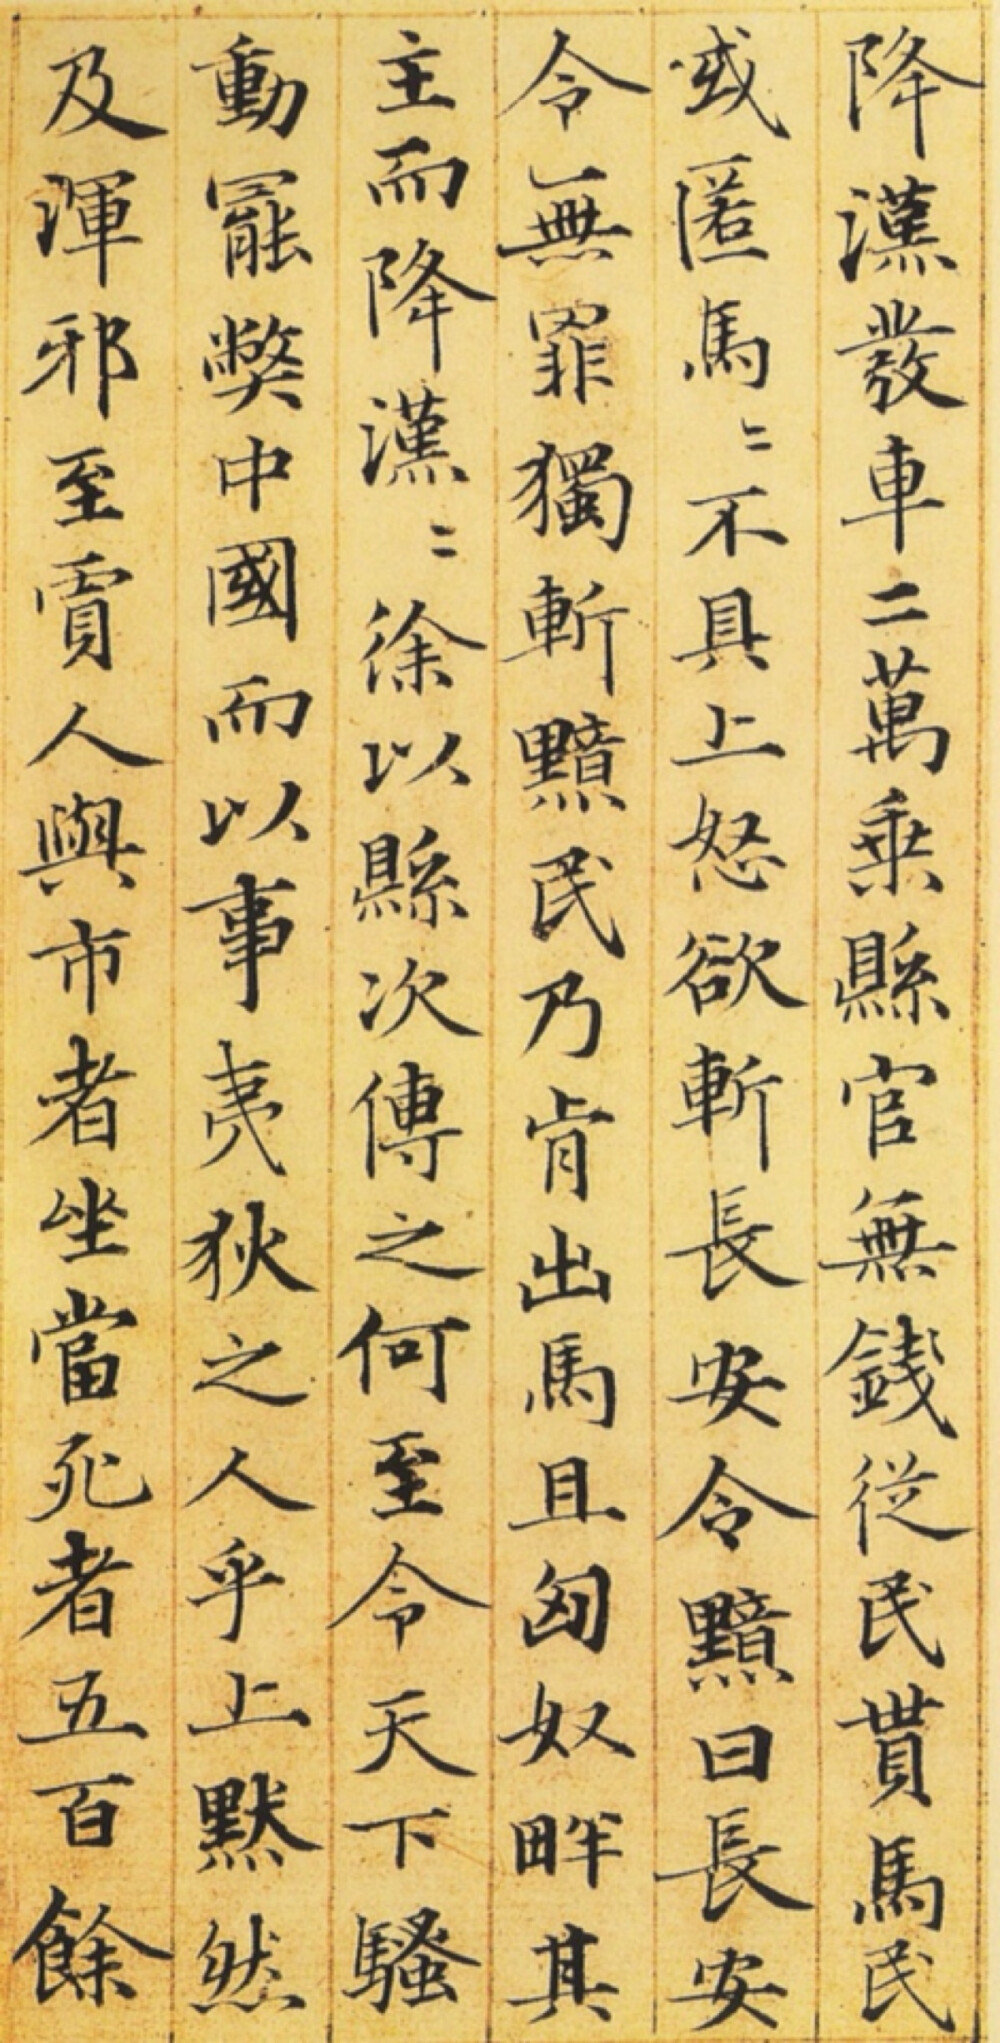 降漢發車二萬乗縣官無錢従民貰馬民
或匿馬〻不具上怒欲斬長安令黯曰長安
令無罪獨斬黯民乃肯出馬且匈奴畔其
主而降漢〻徐以縣次傳之何至令天下騷
動罷弊中國而以事夷狄之人乎上默然
及渾邪至賈人與市者坐當死者五百餘